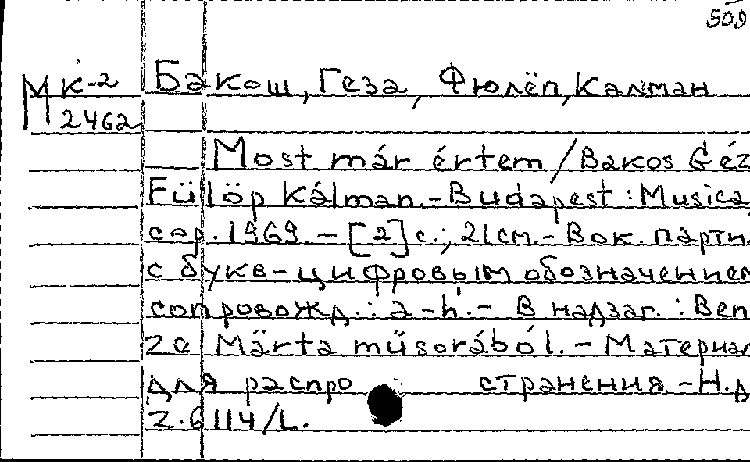 509
МК-2 Бакош, Геза, Фюлёп, Калман
2462
Most már értem / Bakos Géz
Fülöp Kálman. - Budapest : Musica
cop. 1969. - [2] с.; 21 см. - Вок. парти
с букв-цифровым обозначением
сопровожд. : a-h. - В надзаг. : Ben
ze Márta műsorából. - Материал
для распространения - Н.д
Z.6114/L.